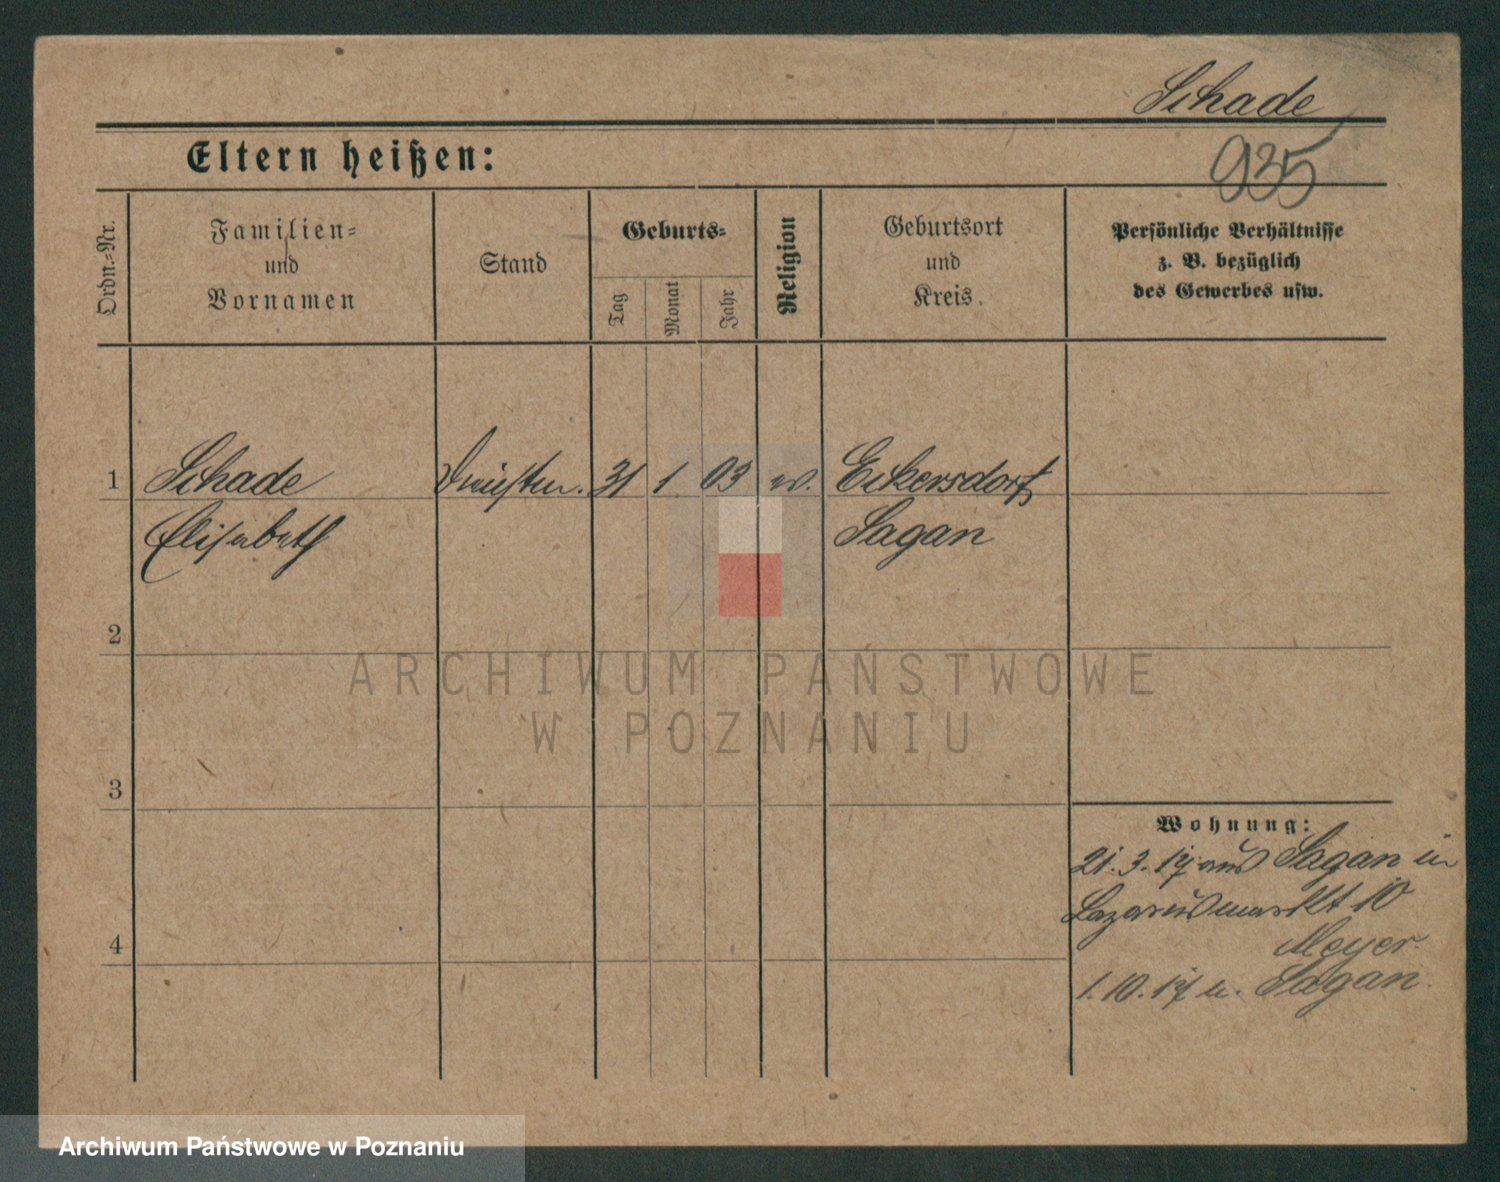 Schade
935
Eltern heißen:
Ordn.=Nr.
Familien=
und
Vornamen
Stand
Geburts=
Tag
Monat
Jahr
Religion
Geburtsort
und
Kreis.
Persönliche Verhältnisse
z. B. bezüglich
des Gewerbes usw.
1 Schade 31 1 03 ev. Eckersdorf
Elisabeth Sagan
2
3
4
Wohnung:
21.3.17 aus Sagan in
Lazarusmarkt 10
Meyer.
1.10.17 n. Sagan.
ARCHIWUM PAŃSTWOWE
W POZNANIU
Archiwum Państwowe w Poznaniu